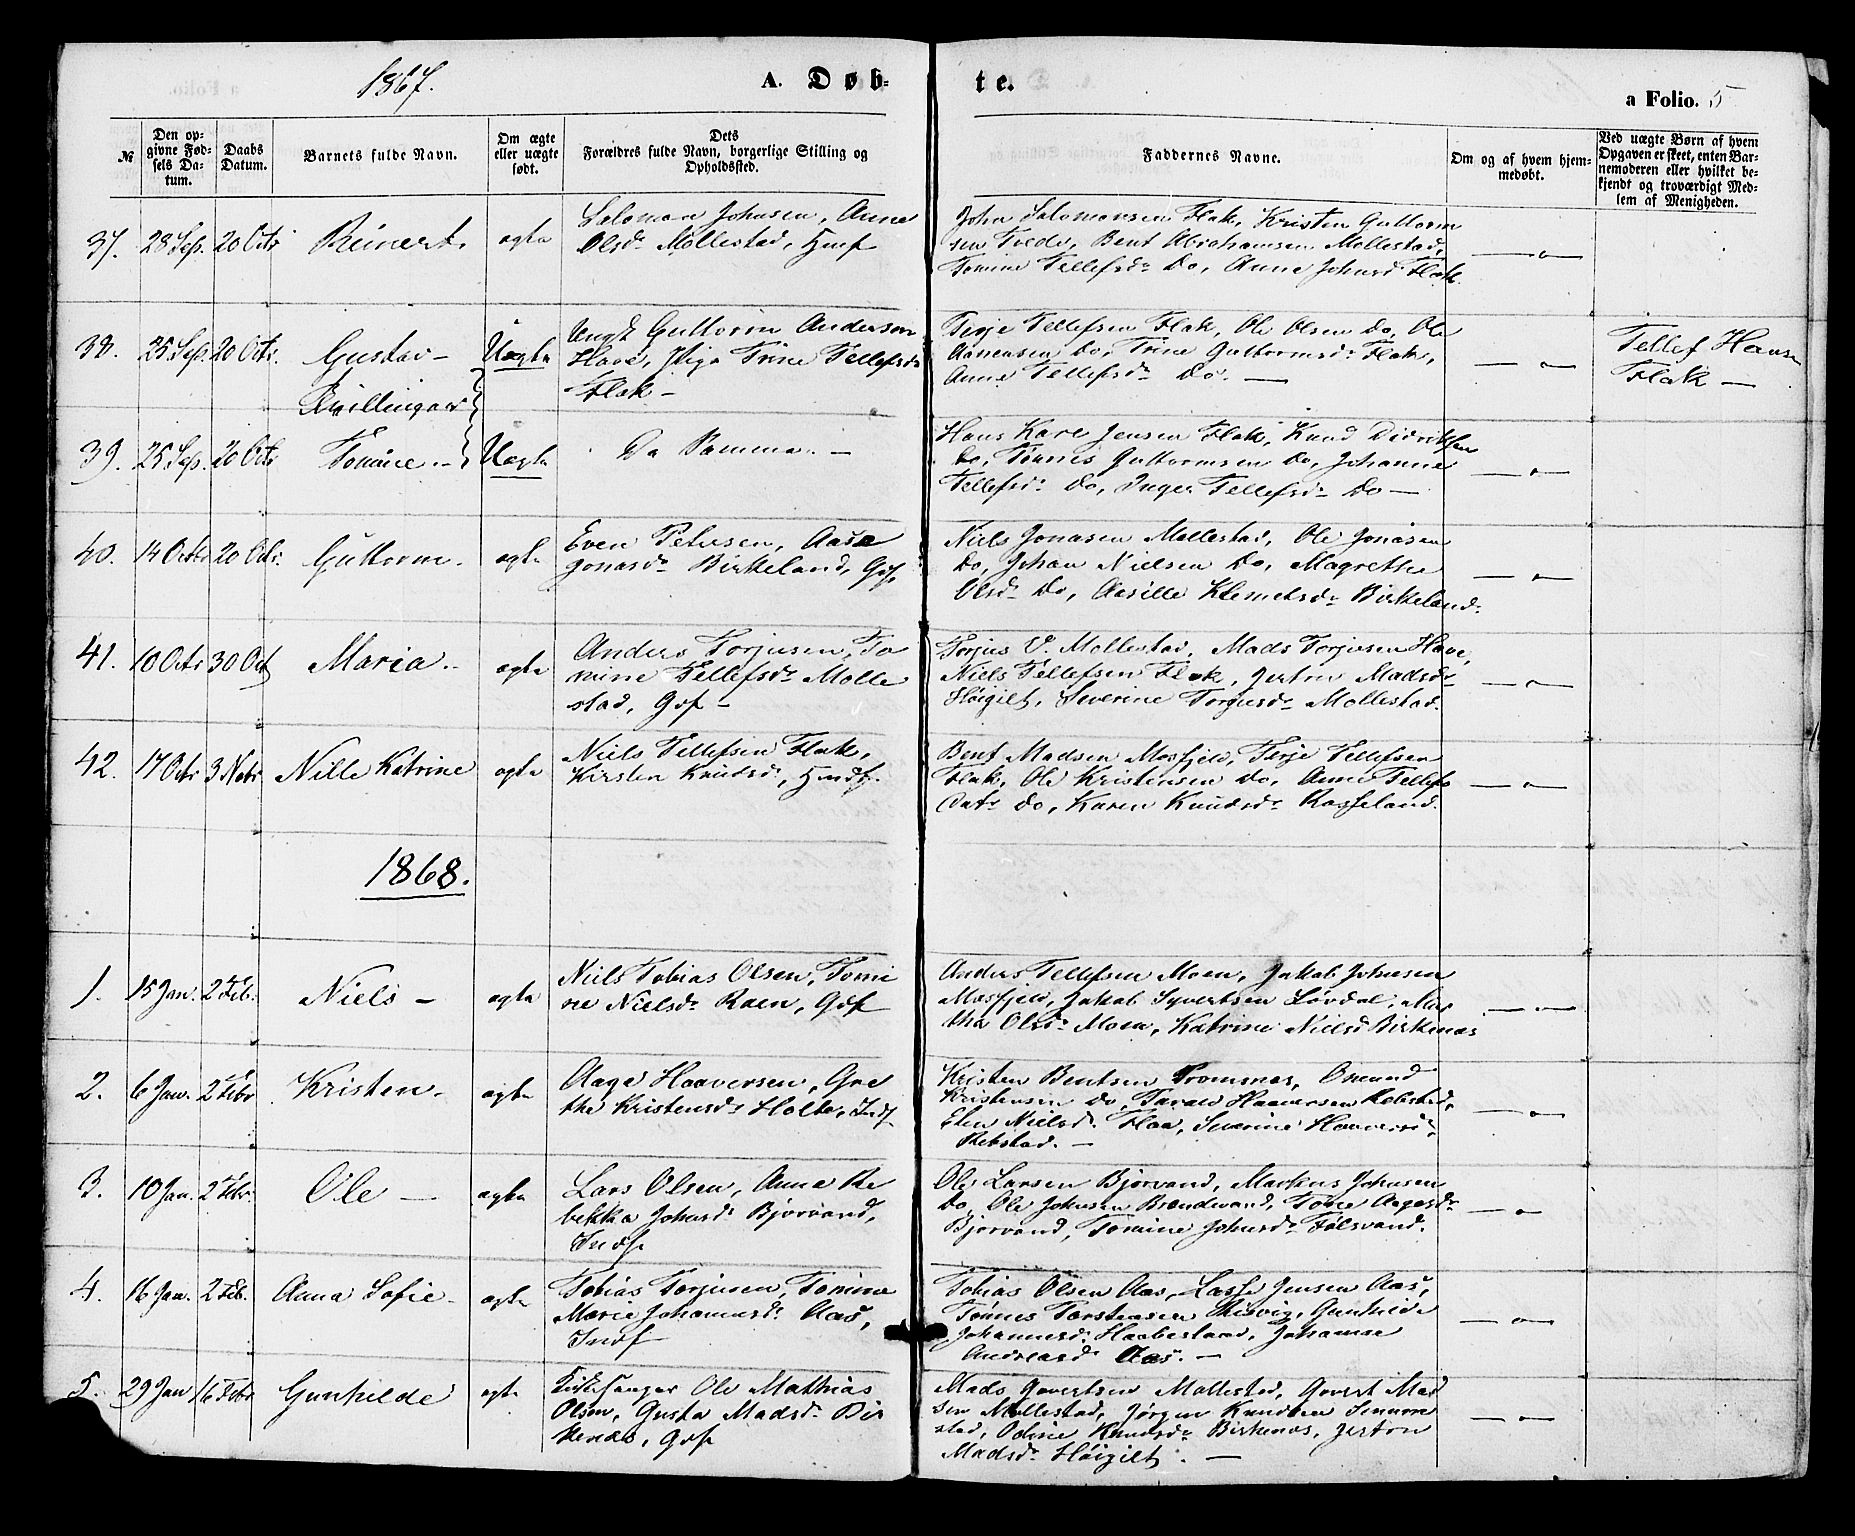 1867.
A. Døb-
te.
a Folio. 5
№
Den op-
givne Fød-
sels Da-
tum.
Daabs
Datum.
Barnets fulde Navn.
Om ægte
eller uægte
født.
Dets
Forældres fulde Navn, borgerlige Stilling og
Opholdssted.
Faddernes Navne.
Om og af hvem hjem-
medøbt.
Ved uægte Børn af hvem
Opgaven er skeet, enten Bar-
nemoderen eller hvilket be-
kjendt og troværdigt Med-
lem af Menigheden.
37. 28 Sep. 20 Octr Reinert. ægte
Salomon Johnsen, Anne
Olsdr Mollestad, Hmf
John Salomonsen Flak, Kristen Guttorm
sen Tvede, Bent Abrahamsen Mollestad,
Tomine Tellefsdr Do, Anne Johnsd Flak.
— o —
38. 25 Sep. 20 Octr. Gustav — Uægte
Tvillinger
Ungk Guttorm Andersen
Have, Pige Trine Tellefsdr
Flak —
Terje Tellefsen Flak, Ole Olsen Do, Ole
Aanensen Do, Trine Guttormsdr Flak,
Anne Tellefsdr Do. —
— o —
Tellef Hansen
Flak —
39. 25 Sep. 20 Octr Tomine. — Uægte
De Samme. —
Hans Kare Jensen Flak, Knud Didriksen
Do, Tønnes Guttormsen Do, Johanne
Tellefsdr Do, Inger Tellefsdr Do —
— o —
40. 14 Octr 20 Octr. Guttorm. ægte
Even Petersen, Aase
Jonasdr Birkeland, Gdf.
Niels Jonasen Mollestad, Ole Jonasen
Do, Johan Nielsen Do, Magrethe
Olsdr Do, Aasille Klemetsdr Birkeland.
— o —
41. 10 Octr 30 Oct Maria. ægte
Anders Torjusen, To
mine Tellefsdr Molle
stad, Gdf —
Torjus V. Mollestad, Mads Torjusen Have,
Niels Tellefsen Flak, Jerton Madsdr
Høigilt, Severine Torjusdr Mollestad.
— o —
42. 17 Octr 3 Nobr Nille Katrine ægte
Niels Tellefsen Flak,
Kirsten Knudsdr, Hmdf.
Bent Madsen Mosfjeld, Terje Tellefsen
Flak, Ole Kristensen Do, Anne Tellefs
Datr Do, Karen Knudsdr Rosseland.
— o —
1868.
1. 15 Jan. 2 Feb. Niels — ægte
Niels Tobias Olsen, Tomi
ne Nielsdr Raen, Gdf
Anders Tellefsen Moen, Jakob Johnsen
Mosfjeld, Jakob Syvertsen Løvdal, Mar
tha Olsdr Moen, Katrine Nielsd Birkenæs
— o —
2. 6 Jan. 2 Febr Kristen. ægte
Aage Haaversen, Gre
the Kristensdr Holte, Indf.
Kristen Bentsen Tromnæs, Osmund
Kristensen Do, Tarald Haaversen Rebstad,
Elen Nielsd. Flaa, Severine Haaversdr
Rebstad. —
— o —
3. 10 Jan. 2 Febr. Ole — ægte
Lars Olsen, Anna Re
bekka Johnsdr Bjorvand,
Indf.
Ole Larsen Bjorvand, Markus Johnsen
Do, Ole Johnsen Brændvand, Tone Aagesdr
Bjorvand, Tomine Johnsdr Følsvand.
— o —
4. 16 Jan. 2 Feb. Anna Sofie. ægte
Tobias Torjusen, Tomine
Marie Johannesdr Aas,
Indf
Tobias Olsen Aas, Lasse Jensen Aas,
Tønnes Torstensen Skisvig, Gunhilde
Johannesdr Haabesland, Johanne
Andreasdr Aas. —
— o —
5. 29 Jan 16 Febr Gunhilde ægte
Kirkesanger Ole Mathias
Olsen, Gusta Madsdr Bir
kenæs, Gdf
Mads Govertsen Mollestad, Govert Mad
sen Mollestad, Jørgen Knudsen Senum
stad, Odine Knudsdr Birkenæs, Jerton
Madsdr Høigilt. —
— o —